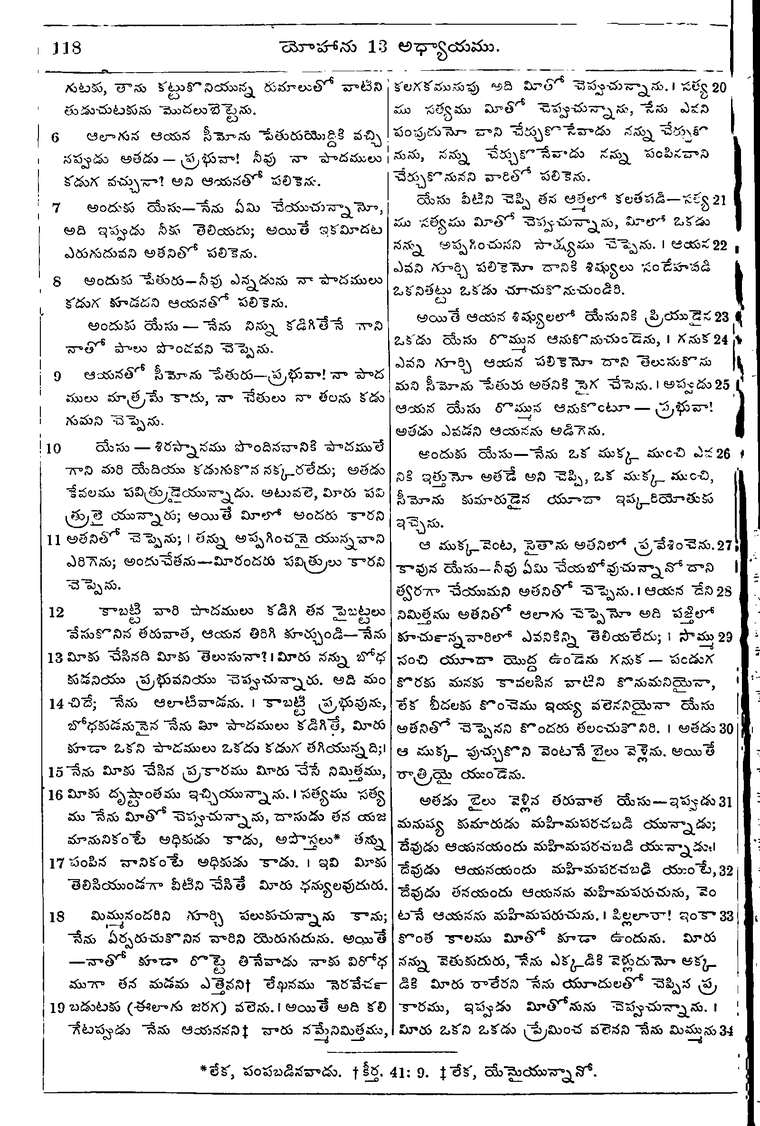 118
యోహాను 13 అధ్యాయము.
గుటకు, తాను కట్టుకొనియున్న రుమాలుతో వాటిని
తుడుచుటకును మొదలుబెట్టెను.
6 ఆలాగున ఆయన సీమోను పేతురుయొద్దికి వచ్చి
నప్పుడు అతడు — ప్రభువా! నీవు నా పాదములు
కడుగ వచ్చునా! అని ఆయనతో పలికెను.
7 అందుకు యేసు—నేను ఏమి చేయుచున్నానో,
అది ఇప్పుడు నీకు తెలియదు; అయితే ఇకమీదట
ఎరుగుదువని అతనితో పలికెను.
8 అందుకు పేతురు—నీవు ఎన్నడును నా పాదములు
కడుగ కూడదని ఆయనతో పలికెను.
అందుకు యేసు — నేను నిన్ను కడిగితేనే గాని
నాతో పాలు పొందవని చెప్పెను.
9 ఆయనతో సీమోను పేతురు—ప్రభువా! నా పాద
ములు మాత్రమే కాదు, నా చేతులు నా తలను కడు
గుమని చెప్పెను.
10 యేసు — శిరస్నానము పొందినవానికి పాదములే
గాని మరి యేదియు కడుగుకొన నక్కరలేదు; అతడు
కేవలము పవిత్రుడైయున్నాడు. అటువలె, మీరు పవి
త్రులై యున్నారు; అయితే మీలో అందరు కారని
11 అతనితో చెప్పెను; । తన్ను అప్పగించనై యున్నవాని
ఎరిగెను; అందుచేతను—మీరందరు పవిత్రులు కారని
చెప్పెను.
12 కాబట్టి వారి పాదములు కడిగి తన పైబట్టలు
వేసుకొనిన తరువాత, ఆయన తిరిగి కూర్చుండి—నేను
13 మీకు చేసినది మీకు తెలుసునా?। మీరు నన్ను బోధ
కుడనియు ప్రభువనియు చెప్పుచున్నారు. అది మం
14 చిదే; నేను ఆలాటివాడను. । కాబట్టి ప్రభువును,
బోధకుడనునైన నేను మీ పాదములు కడిగితే, మీరు
కూడా ఒకని పాదములు ఒకడు కడుగ తగియున్నది;।
15 నేను మీకు చేసిన ప్రకారము మీరు చేసే నిమిత్తము,
16 మీకు దృష్టాంతము ఇచ్చియున్నాను. । సత్యము సత్య
ము నేను మీతో చెప్పుచున్నాను, దాసుడు తన యజ
మానునికంటే అధికుడు కాడు, అపొస్తలు* తన్ను
17 పంపిన వానికంటే అధికుడు కాడు. । ఇవి మీకు
తెలిసియుండగా వీటిని చేసితే మీరు ధన్యులవుదురు.
18 మిమ్మునందరిని గూర్చి పలుకుచున్నాను కాను;
నేను ఏర్పరుచుకొనిన వారిని యెరుగుదును. అయితే
—నాతో కూడా రొట్టె తినేవాడు నాకు విరోధ
ముగా తన మడమ ఎత్తెనని† లేఖనము నెరవేర్చ
19 బడుటకు (ఈలాగు జరగ) వలెను. । అయితే అది కలి
గేటప్పుడు నేను ఆయనని‡ మీరు నమ్మేనిమిత్తము,
కలగకమునుపు అది మీతో చెప్పుచున్నాను. । సత్య 20
ము సత్యము మీతో చెప్పుచున్నాను, నేను ఎవని
పంపుదునో వాని చేర్చుకొనేవాడు నన్ను చేర్చుకొ
నును, నన్ను చేర్చుకొనేవాడు నన్ను పంపినవాని
చేర్చుకొనునని వారితో పలికెను.
యేసు వీటిని చెప్పి తన ఆత్మలో కలతపడి—సత్య 21
ము సత్యము మీతో చెప్పుచున్నాను, మీలో ఒకడు
నన్ను అప్పగించునని సాక్ష్యము చెప్పెను. । ఆయన 22
ఎవని గూర్చి పలికెనో దానికి శిష్యులు సందేహపడి
ఒకనితట్టు ఒకడు చూచుకొనుచుండిరి.
అయితే ఆయన శిష్యులలో యేసునికి ప్రియుడైన 23
ఒకడు యేసు రొమ్మున ఆనుకొనుచుండెను, । గనుక 24
ఎవని గూర్చి ఆయన పలికెనో దాని తెలుసుకొను
మని సీమోను పేతురు అతనికి సైగ చేసెను. । అప్పుడు 25
ఆయన యేసు రొమ్మున ఆనుకొంటూ — ప్రభువా!
అతడు ఎవడని ఆయనను అడిగెను.
అందుకు యేసు—నేను ఒక ముక్క ముంచి ఎవ 26
నికి ఇత్తునో అతడే అని చెప్పి, ఒక ముక్క ముంచి,
సీమోను కుమారుడైన యూదా ఇష్కరియోతుకు
ఇచ్చెను.
ఆ ముక్కవెంట, సైతాను అతనిలో ప్రవేశించెను. 27
కావున యేసు—నీవు ఏమి చేయబోవుచున్నావో దాని
త్వరగా చేయుమని అతనితో చెప్పెను. । ఆయన దేని 28
నిమిత్తము అతనితో ఆలాగు చెప్పెనో అది పజ్తిలో
కూచున్నవారిలో ఎవనికిన్ని తెలియలేదు; । సొమ్ము 29
సంచి యూదా యొద్ద ఉండెను గనుక — పండుగ
కొరకు మనకు కావలసిన వాటిని కొనుమనియైనా,
లేక బీదలకు కొంచెము ఇయ్య వలెననియైనా యేసు
అతనితో చెప్పెనని కొందరు తలంచుకొనిరి. । అతడు 30
ఆ ముక్క పుచ్చుకొని వెంటనే బైలు వెళ్లెను. అయితే
రాత్రియై యుండెను.
అతడు బైలు వెళ్లిన తరువాత యేసు—ఇప్పుడు 31
మనుష్య కుమారుడు మహిమపరచబడి యున్నాడు;
దేవుడు ఆయనయందు మహిమపరచబడి యున్నాడు;।
దేవుడు ఆయనయందు మహిమపరచబడి యుంటే, 32
దేవుడు తనయందు ఆయనను మహిమపరుచును, వెం
టనే ఆయనను మహిమపరుచును. । పిల్లలారా! ఇంకా 33
కొంత కాలము మీతో కూడా ఉందును. మీరు
నన్ను వెతుకుదురు, నేను ఎక్కడికి వెళ్లుదునో అక్క
డికి మీరు రాలేరని నేను యూదులతో చెప్పిన ప్ర
కారము, ఇప్పుడు మీతోనును చెప్పుచున్నాను. ।
మీరు ఒకని ఒకడు ప్రేమించ వలెనని నేను మిమ్మును 34
*లేక, పంపబడినవాడు. †కీర్త. 41: 9. ‡లేక, యేమైయున్నానో.